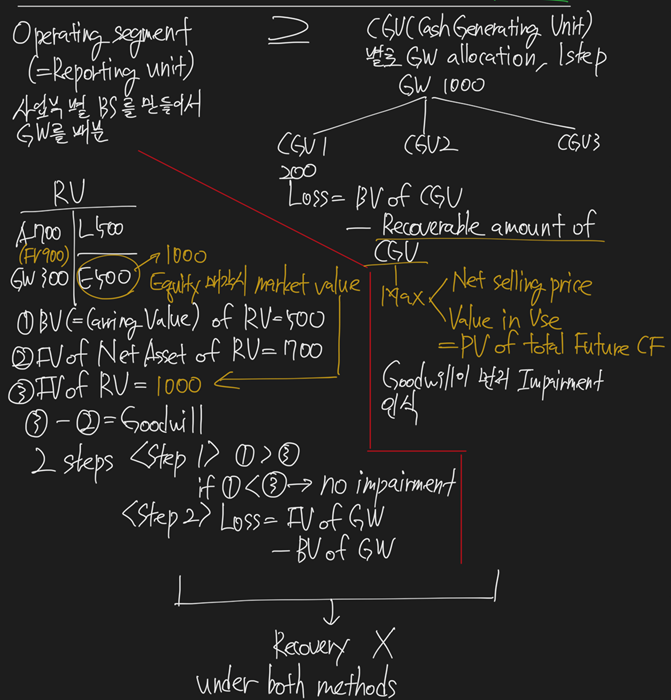 Operating segment
(=Reporting unit)
사업부 별 BS를 만들어서
GW를 배분
⊇
CGU(Cash Generating Unit)
별로 GW allocation, 1step
GW 1000
CGU1
CGU2
CGU3
200
Loss = BV of CGU
- Recoverable amount of
CGU
Max
Net selling price
Value in Use
= PV of total Future CF
Goodwill이 먼저 Impairment
인식
RU
A 700
L 500
(FV 900)
GW 300
E 500
1000
Equity market value
① BV(=Carring Value) of RU=500
② FV of Net Asset of RU= 700
③ FV of RU = 1000
③ - ② = Goodwill
2 steps <Step 1> ① > ③
if ① < ③ → no impairment
<Step 2> Loss = FV of GW
- BV of GW
Recovery X
under both methods